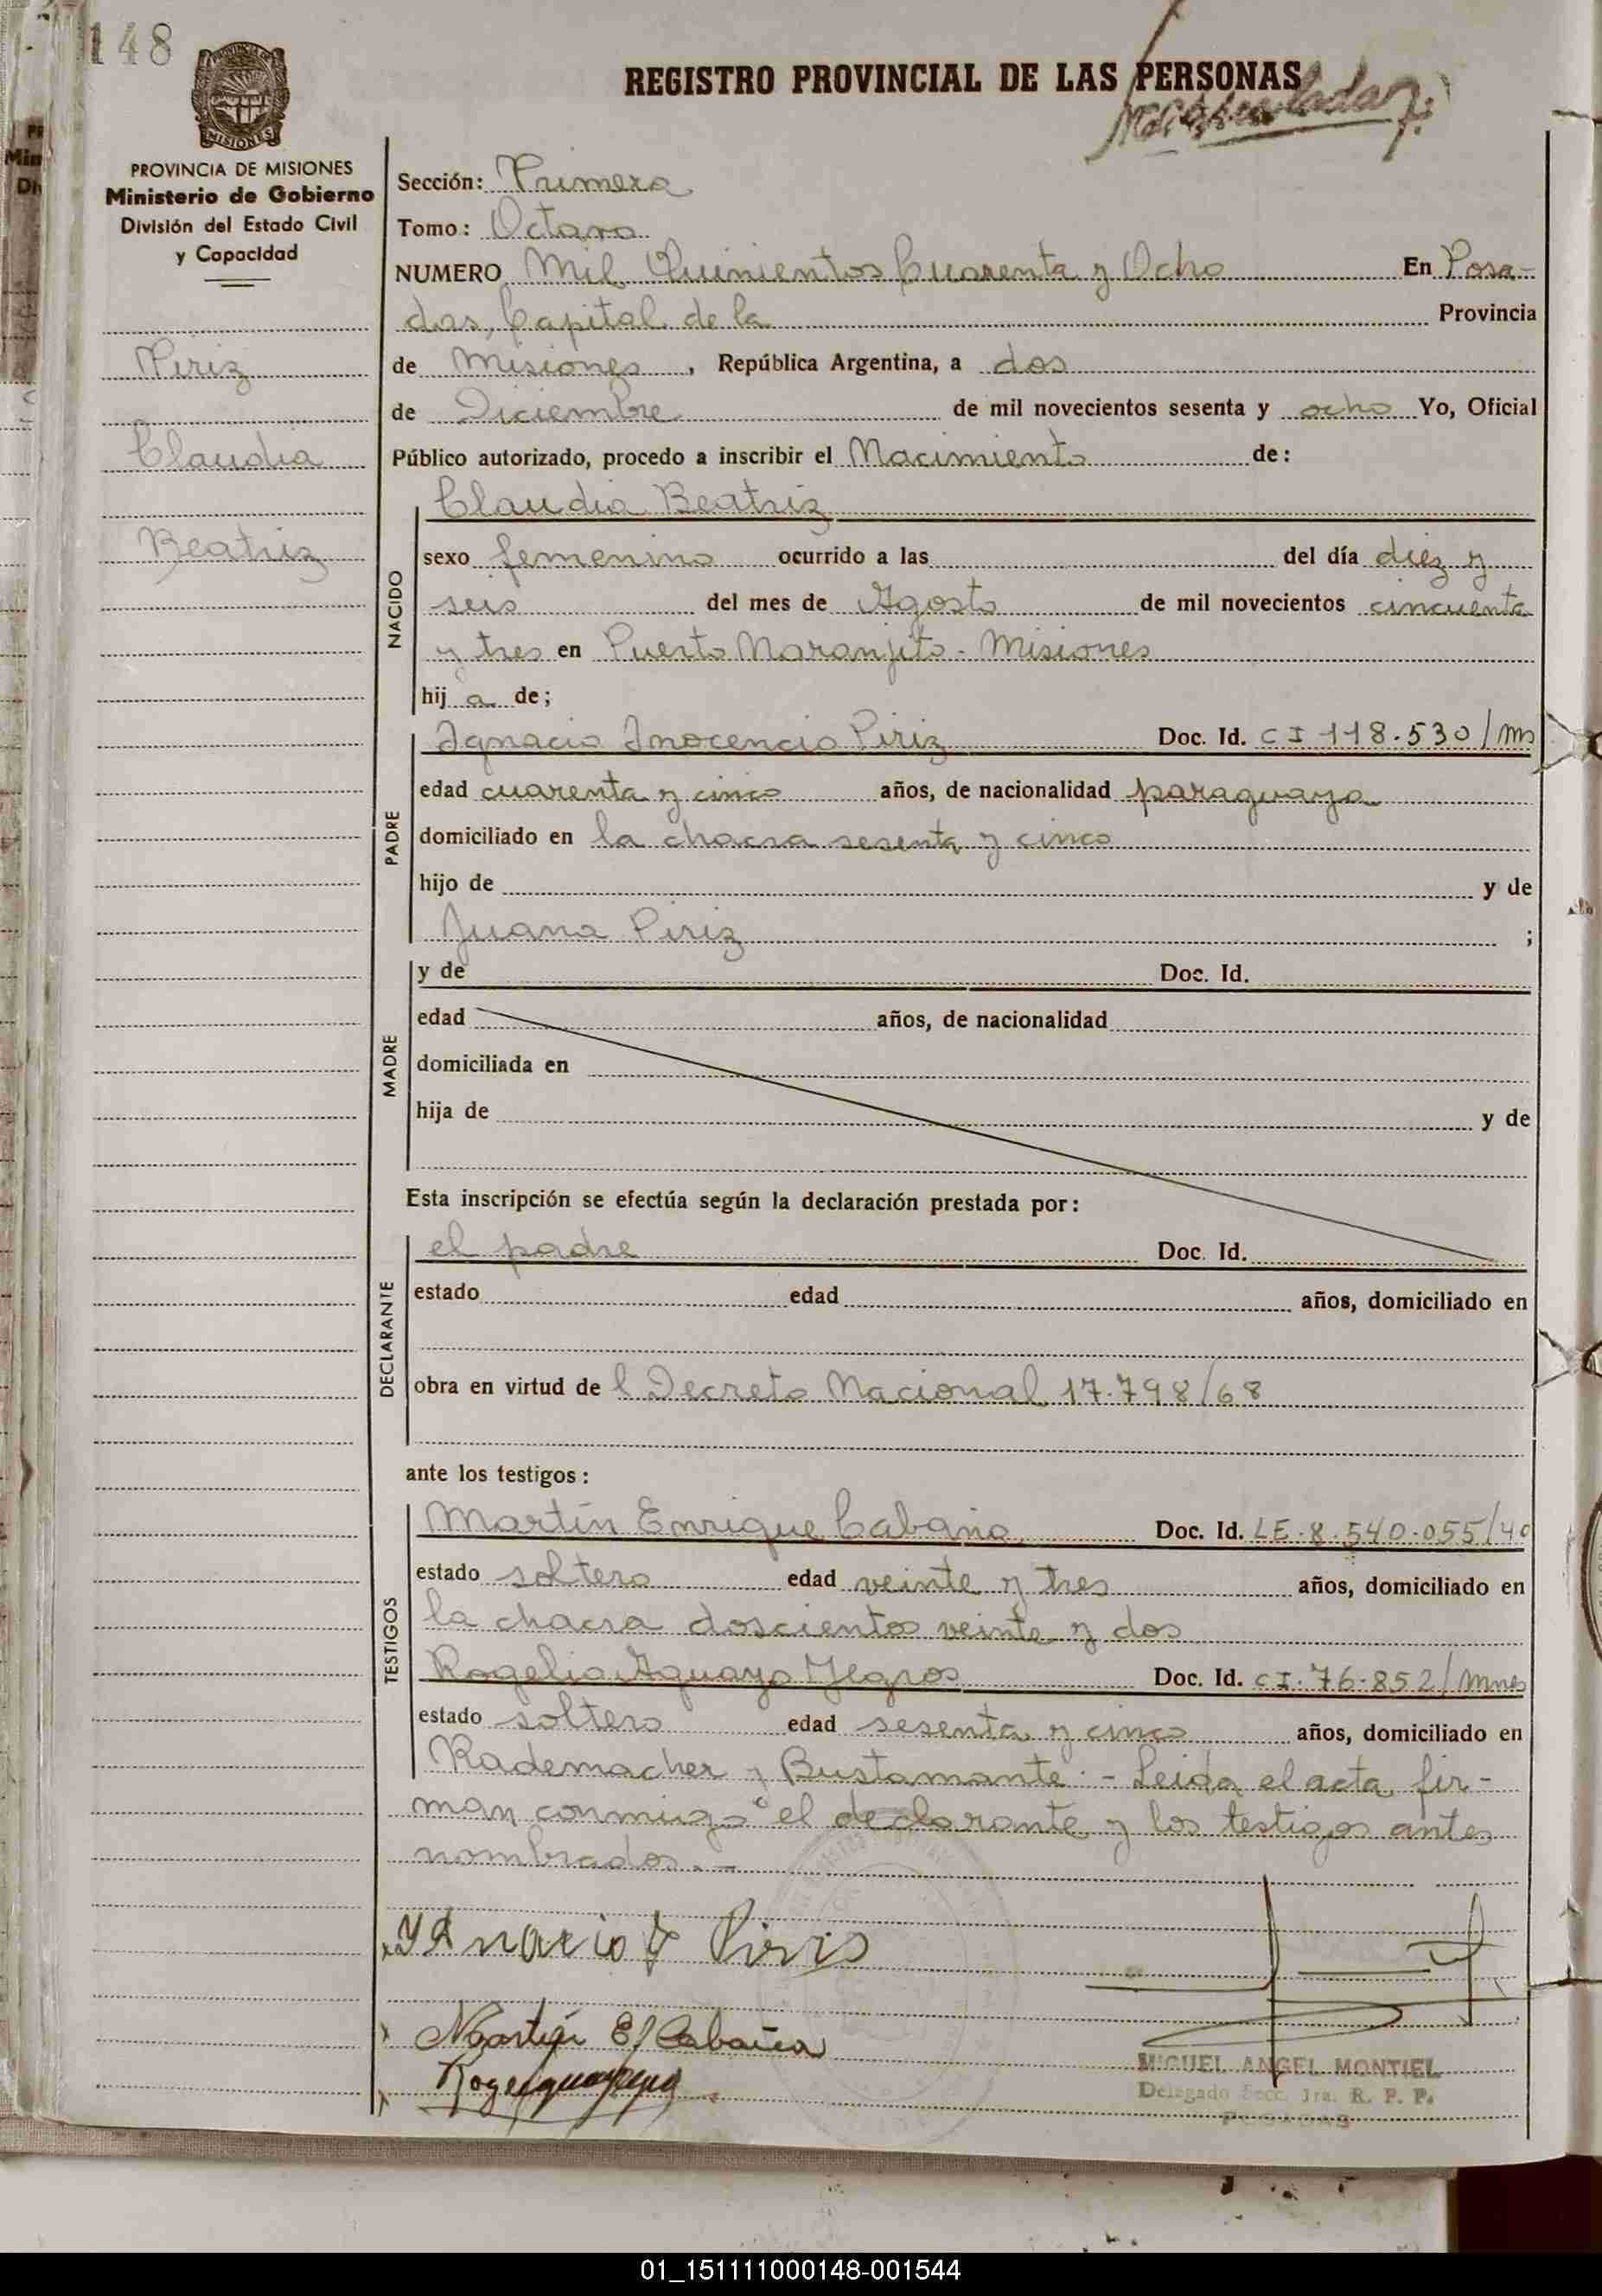 148
REGISTRO PROVINCIAL DE LAS PERSONAS
PROVINCIA DE MISIONES
Ministerio de Gobierno
División del Estado Civil
y Capacidad
Piriz
Claudia
Beatriz
Sección: Primera
Tomo: Octavo
NUMERO Mil Quinientos Cuarenta y Ocho En Posa-
das, Capital de la Provincia
de Misiones, República Argentina, a dos
de Diciembre de mil novecientos sesenta y ocho Yo, Oficial
Público autorizado, procedo a inscribir el Nacimiento de:
NACIDO
Claudia Beatriz
sexo femenino ocurrido a las del día diez y
seis del mes de Agosto de mil novecientos cincuenta
y tres en Puerto Naranjito - Misiones
hij a de;
PADRE
Ignacio Inocencio Piriz Doc. Id. CI 118.530/Ms
edad cuarenta y cinco años, de nacionalidad paraguaya
domiciliado en la chacra sesenta y cinco
hijo de y de
Juana Piriz ;
MADRE
y de Doc. Id.
edad años, de nacionalidad
domiciliada en
hija de y de
Esta inscripción se efectúa según la declaración prestada por:
DECLARANTE
el padre Doc. Id.
estado edad años, domiciliado en
obra en virtud de l Decreto Nacional 17.798/68
ante los testigos:
TESTIGOS
Martín Enrique Cabaña Doc. Id. LE.8.540.055/40
estado soltero edad veinte y tres años, domiciliado en
la chacra doscientos veinte y dos
Rogelio Aguayo Yegros Doc. Id. CI.76.852/Mnes
estado soltero edad sesenta y cinco años, domiciliado en
Rademacher y Bustamante.- Leida el acta, fir-
man conmigo el declarante y los testigos antes
nombrados.-
Ygnacio Y Piris
Martín E Cabaña
MIGUEL ANGEL MONTIEL
Delegado Secc. 1ra. R. P. P.
POSADAS
01_151111000148-001544